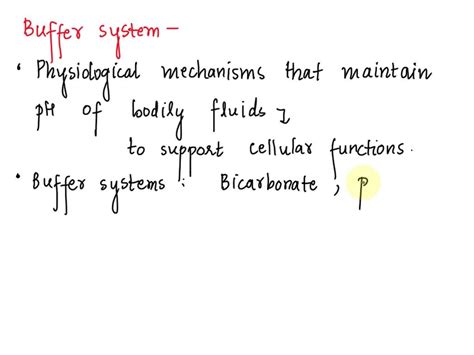 Buffer system –
• Physiological mechanisms that maintain
pH of bodily fluids
to support cellular functions.
• Buffer systems : Bicarbonate , p